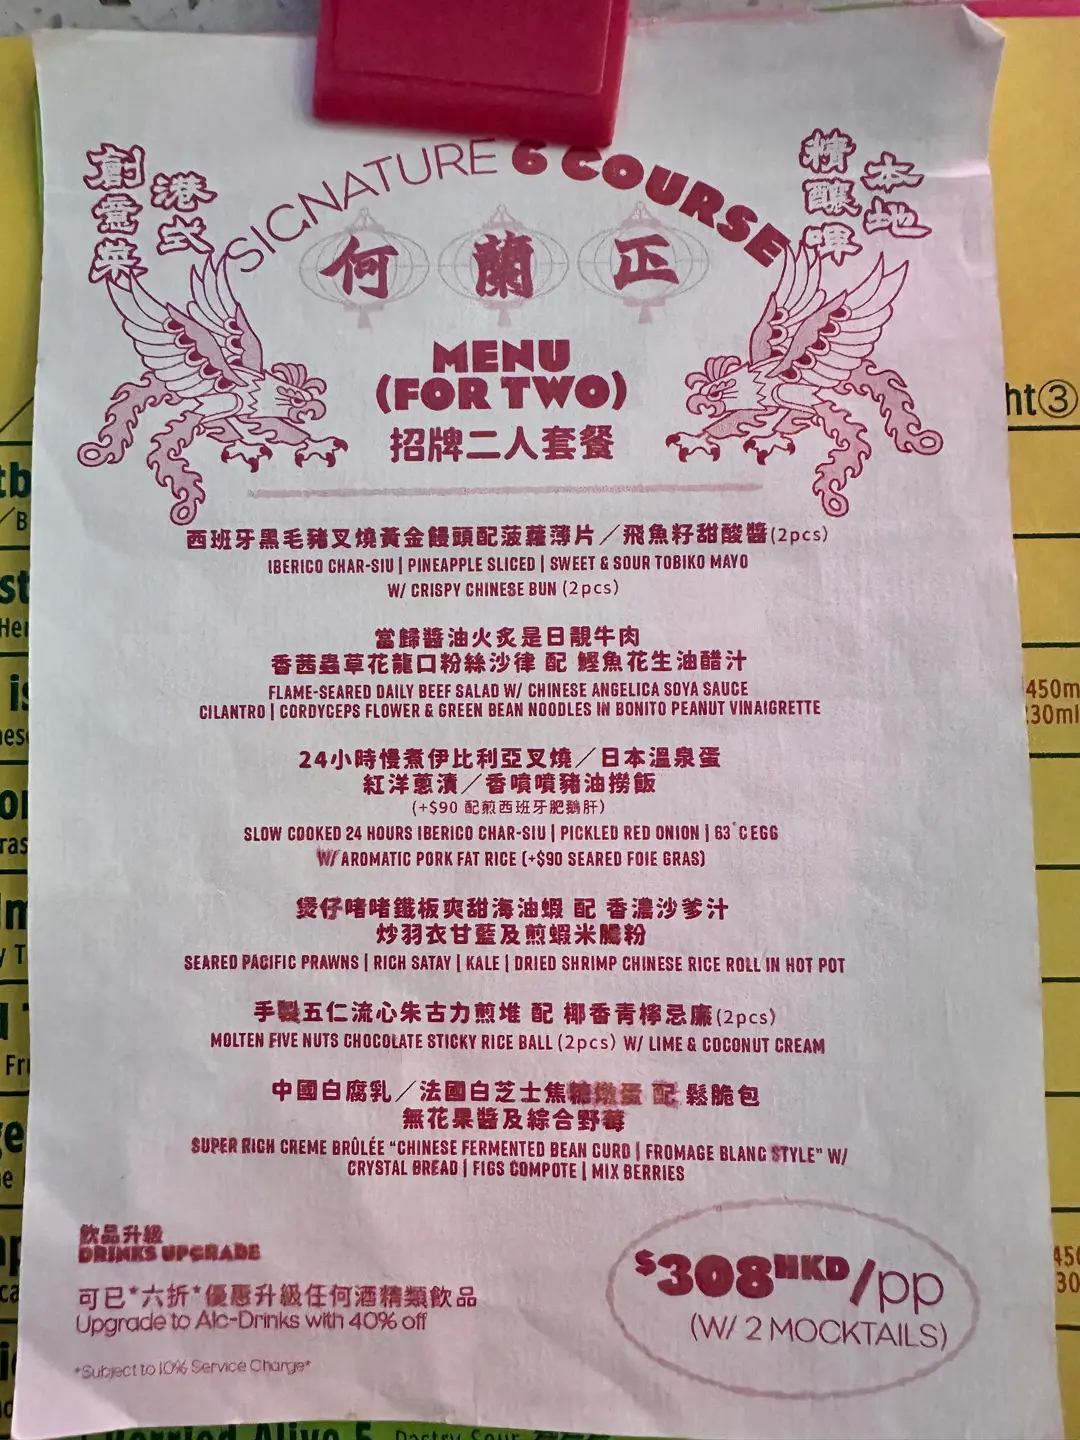 SIGNATURE 6 COURSE
創意菜
港式
精釀啤
本地
何蘭正
MENU
(FOR TWO)
招牌二人套餐
西班牙黑毛豬叉燒黃金饅頭配菠蘿薄片／飛魚籽甜酸醬(2pcs)
IBERICO CHAR-SIU | PINEAPPLE SLICED | SWEET & SOUR TOBIKO MAYO
W/ CRISPY CHINESE BUN (2pcs)
當歸醬油火炙是日靚牛肉
香茜蟲草花龍口粉絲沙律 配 鰹魚花生油醋汁
FLAME-SEARED DAILY BEEF SALAD W/ CHINESE ANGELICA SOYA SAUCE
CILANTRO | CORDYCEPS FLOWER & GREEN BEAN NOODLES IN BONITO PEANUT VINAIGRETTE
24小時慢煮伊比利亞叉燒／日本溫泉蛋
紅洋蔥漬／香噴噴豬油撈飯
(+$90 配煎西班牙肥鵝肝)
SLOW COOKED 24 HOURS IBERICO CHAR-SIU | PICKLED RED ONION | 63°C EGG
W/ AROMATIC PORK FAT RICE (+$90 SEARED FOIE GRAS)
煲仔啫啫鐵板爽甜海油蝦 配 香濃沙爹汁
炒羽衣甘藍及煎蝦米腸粉
SEARED PACIFIC PRAWNS | RICH SATAY | KALE | DRIED SHRIMP CHINESE RICE ROLL IN HOT POT
手製五仁流心朱古力煎堆 配 椰香青檸忌廉(2pcs)
MOLTEN FIVE NUTS CHOCOLATE STICKY RICE BALL (2pcs) W/ LIME & COCONUT CREAM
中國白腐乳／法國白芝士焦糖燉蛋 配 鬆脆包
無花果醬及綜合野莓
SUPER RICH CREME BRÛLÉE "CHINESE FERMENTED BEAN CURD | FROMAGE BLANC STYLE" W/
CRYSTAL BREAD | FIGS COMPOTE | MIX BERRIES
飲品升級
DRINKS UPGRADE
可已*六折*優惠升級任何酒精類飲品
Upgrade to Alc-Drinks with 40% off
*Subject to 10% Service Charge*
$308HKD/pp
(W/ 2 MOCKTAILS)
ht③
450m